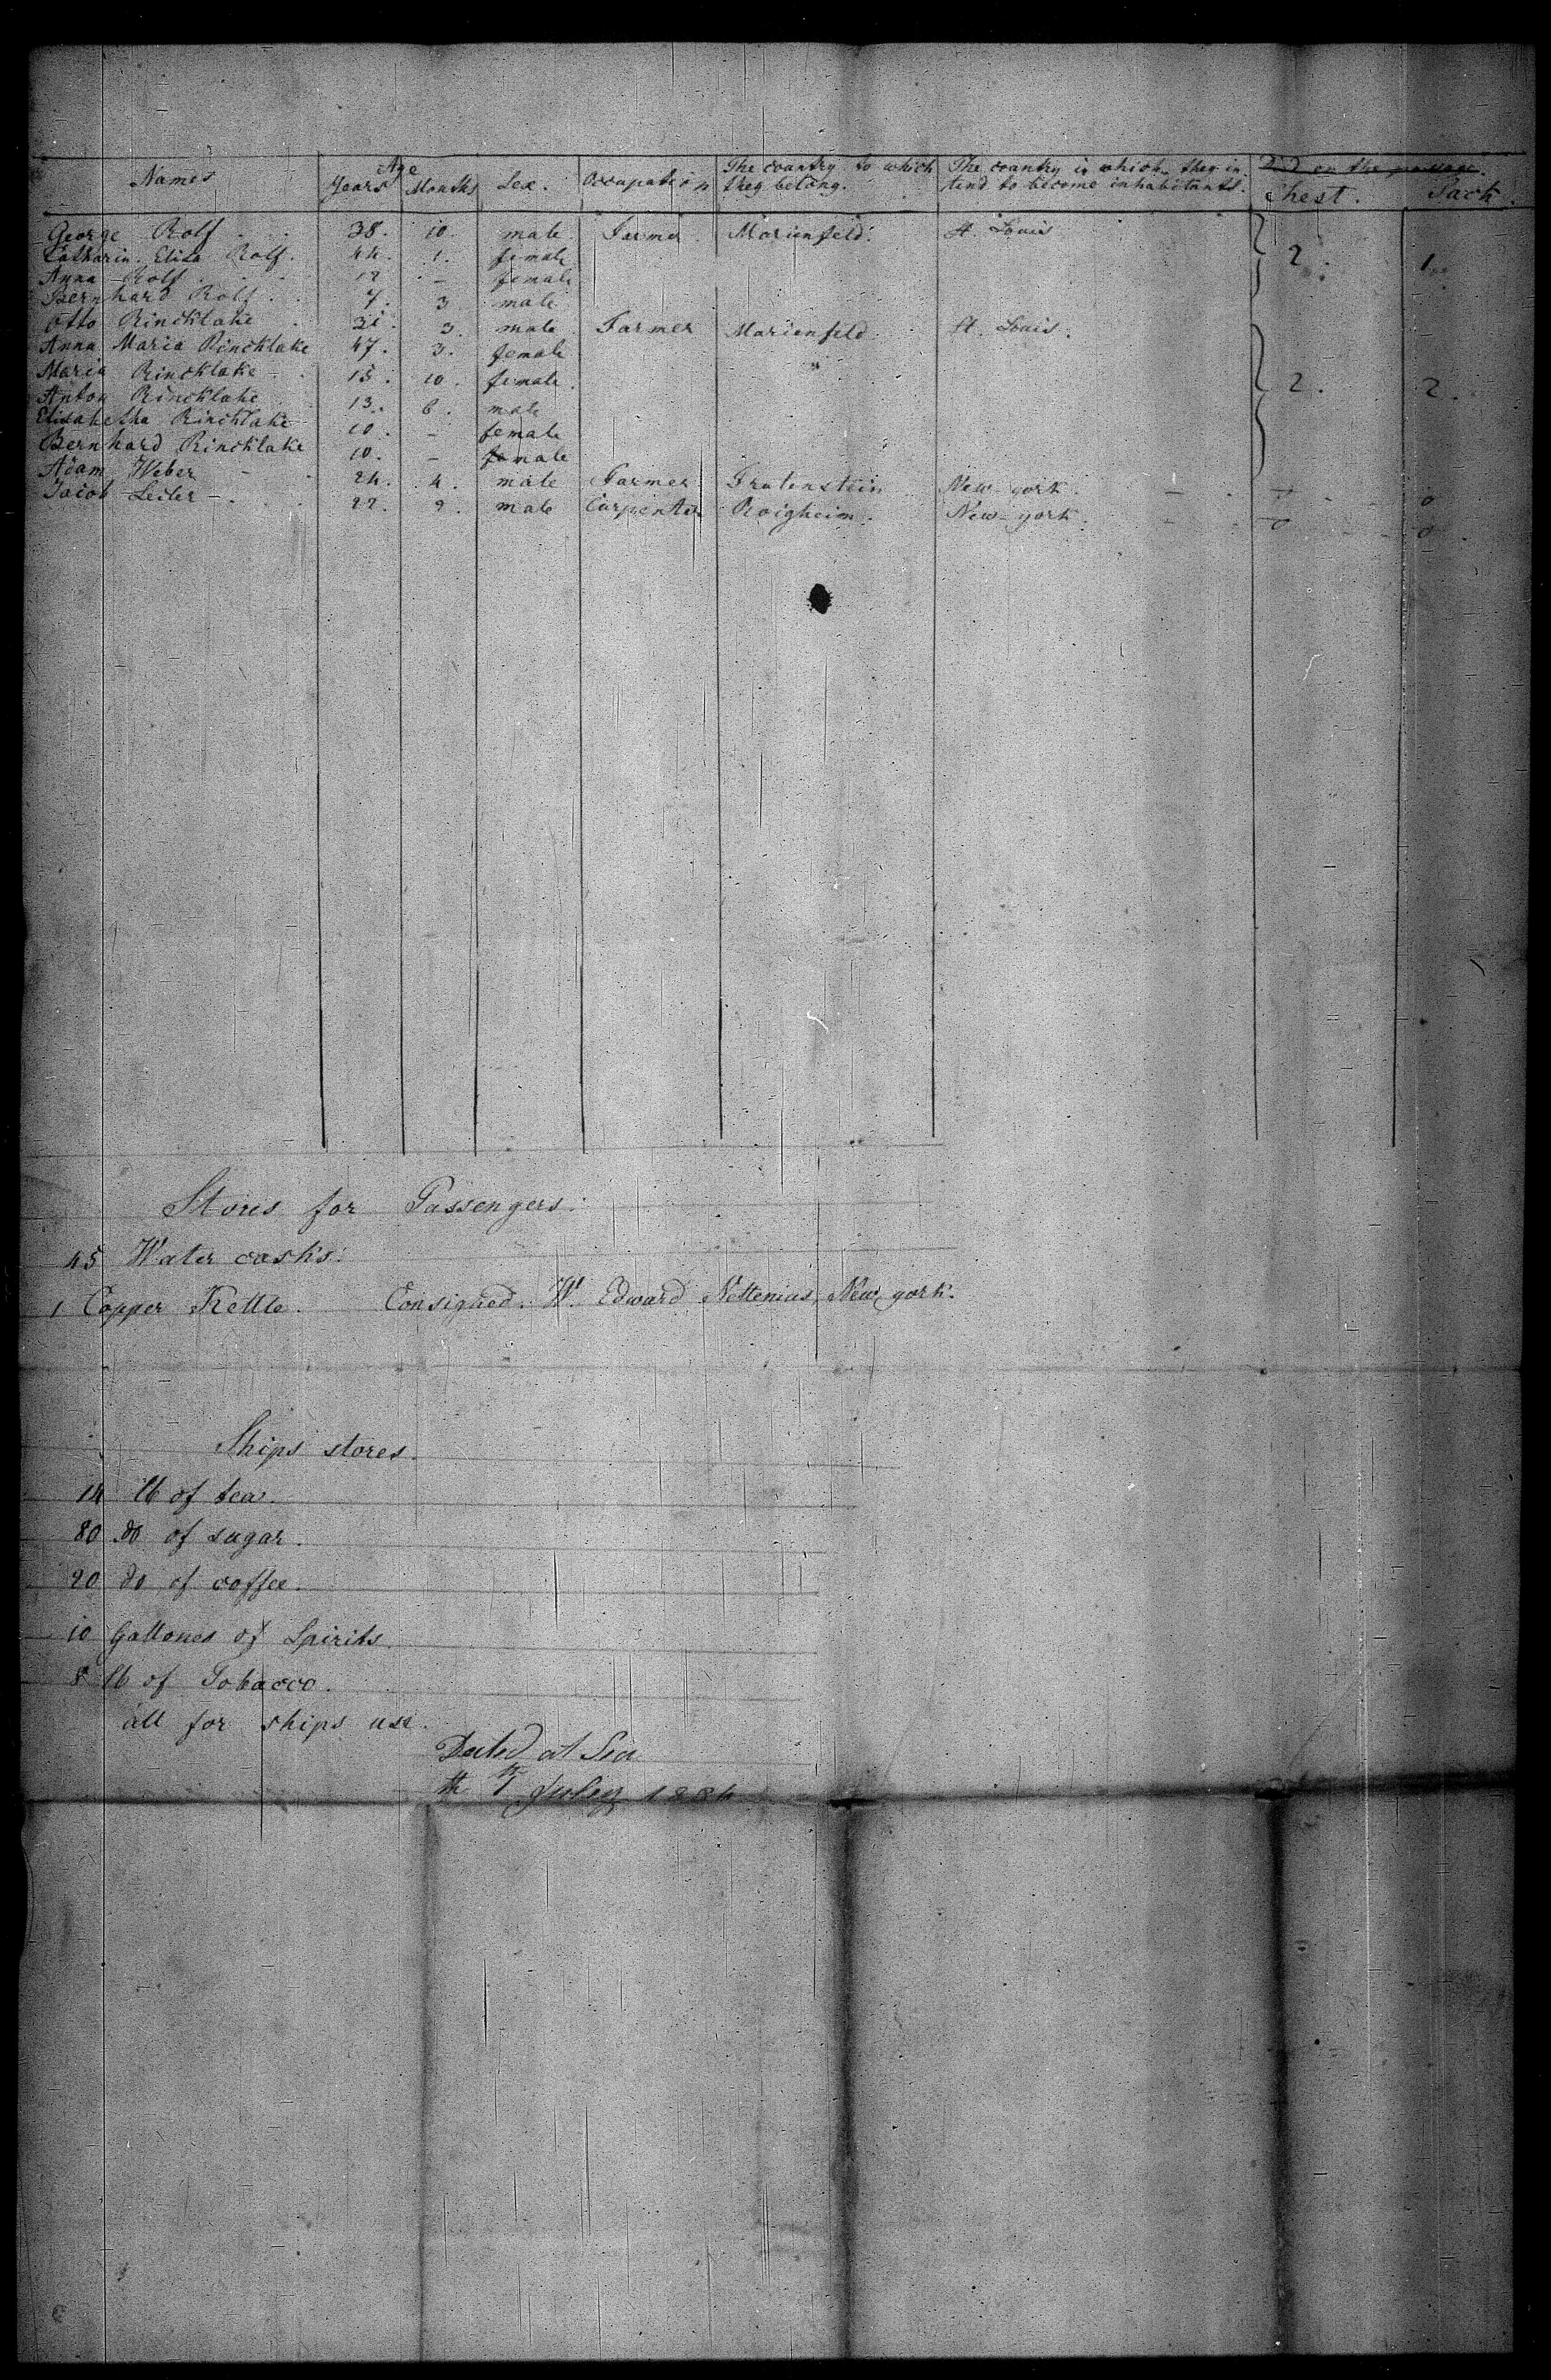 Names Age Years Months Sex. Occupation The country to which they belong. The country in which they intend to become inhabitants. Died on the passage. Chest. Sack.
George Rolf 38. 10. male Farmer. Marienfeld. St. Louis
Catharin. Elisa Rolf. 44. 1. female 2. 1.
Anna Rolf 12 - female
Bernhard Rolf. 7. 3 male
Otto Rincklake 31. 3. male Farmer Marienfeld. St. Louis.
Anna Maria Rincklake 47. 3. female
Maria Rincklake 15. 10. female. 2. 2.
Anton Rincklake 13. 6. male
Elisabetha Rincklake 10. - female
Bernhard Rincklake 10. - male
Adam Weber 24. 4. male Farmer New-york. 0
Jacob 22. 2. male Carpenter Roigheim. New-york. 0 0
Stores for Passengers:
45 Water casks:
1 Copper Kettle. Consigned. W. Edward New york.
Ships stores.
14 lb of tea.
80 do of sugar.
20 do of coffee.
10 Gallones of Spirits.
8 lb of Tobacco.
all for ships use.
Dated at Sea
th July